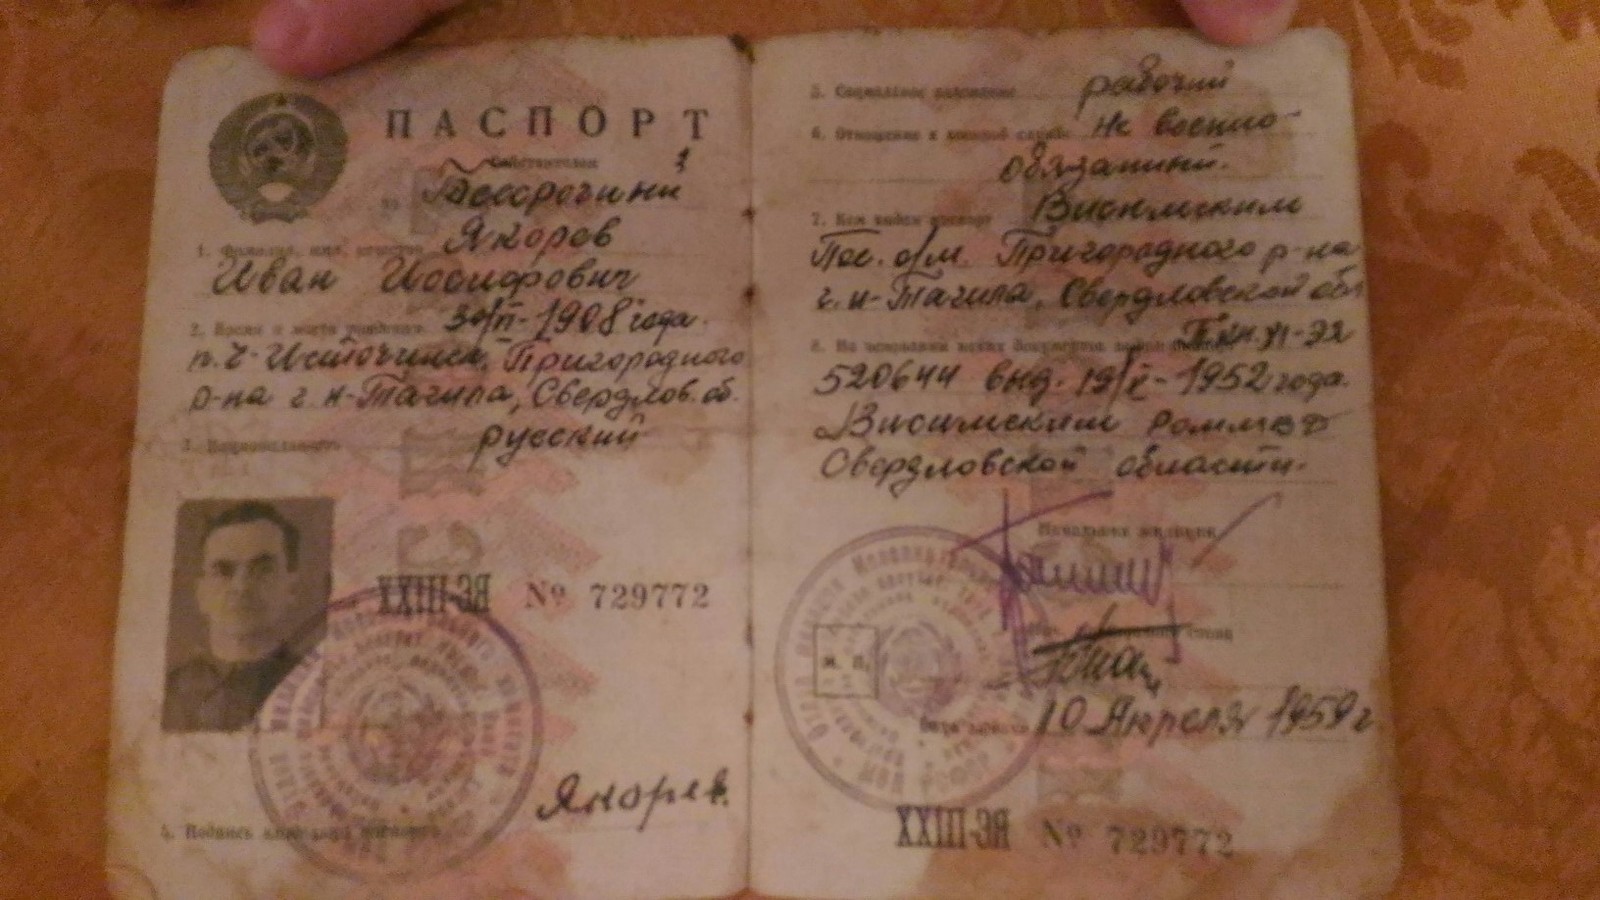 ПАСПОРТ
Действителен
по Бессрочный
1. Фамилия, имя, отчество Якорев
Иван Иосифович
2. Время и место рождения 30/VI-1908 года.
п. Ч-Источинск, Пригородного
р-на г. Н-Тагила, Свердлов. об.
3. Национальность русский
XXIII-ЯС № 729772
Якорев.
4. Подпись владельца паспорта
5. Социальное положение рабочий
6. Отношение к военной службе Не военно-
обязанный.
7. Кем выдан паспорт Висимским
Пос. о/м. Пригородного р-на
г. Н-Тагила, Свердловской обл
8. На основании каких документов выдан паспорт
520644 выд. 19/X-1952 года.
Висимским
Свердловской области.
Начальник милиции
М. П.
10 Апреля 1959 г
XXIII-ЯС № 729772